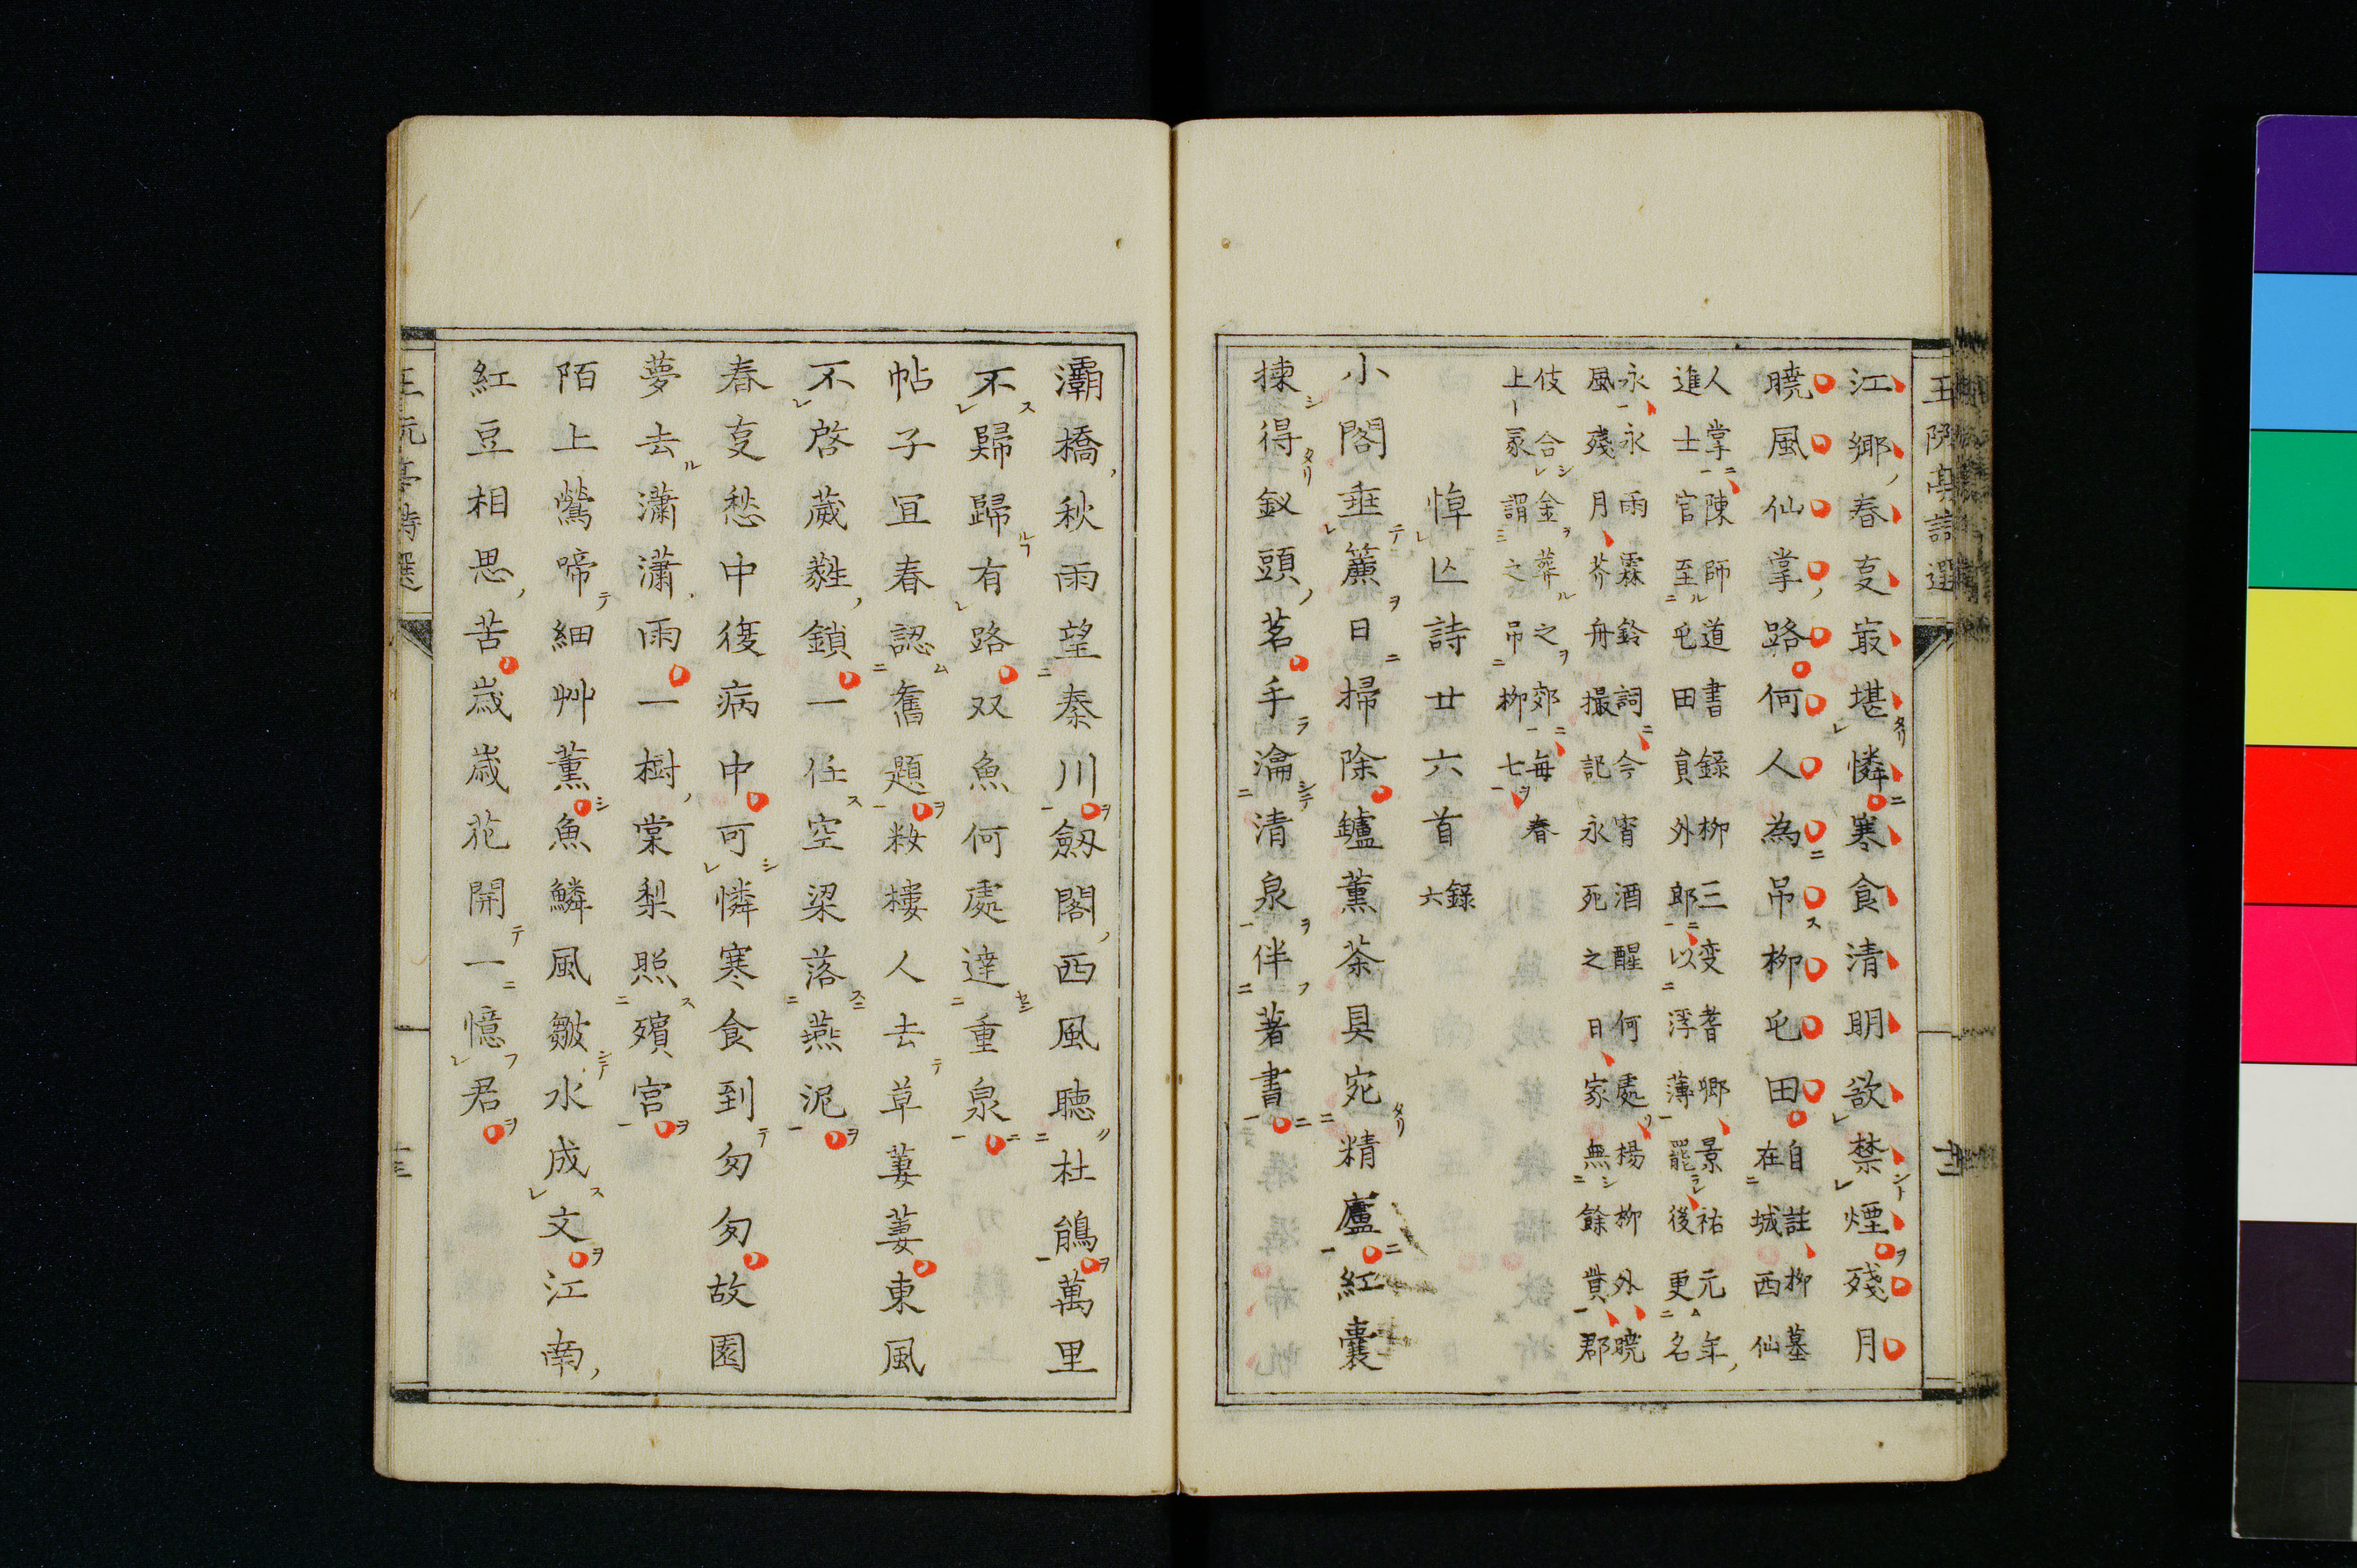 王阮亭詩選
十二
江郷春𡕩㝡堪憐寒食清明欲禁煙殘月
曉風仙掌路何人為吊柳屯田
自註柳墓
在城西仙
人掌陳師道書録柳三変耆卿景祐元年
進士官至屯田員外郎以浮薄罷後更名
永永雨霖鈴詞今宵酒醒何處楊柳外曉
風殘月芥舟撮記永死之日家無餘貲郡
伎合金葬之郊每春
上冢謂之吊柳七
悼亾詩廿六首
録
六
小閣垂簾日掃除鑪薰茶具宛精廬紅囊
揀得釵頭茗手瀹清泉伴著書
灞橋秋雨望秦川劔閣西風聴杜鵑萬里
不歸歸有路双魚何處達重泉
帖子冝春認舊題粧樓人去草萋萋東風
不啓葳蕤鎖一任空梁落燕泥
春𡕩愁中復病中可憐寒食到匆匆故園
夢去瀟瀟雨一樹棠梨照殯宮
陌上鶯啼細艸薫魚鱗風皺水成文江南
紅豆相思苦歳歳花開一憶君
王阮亭詩選
十三